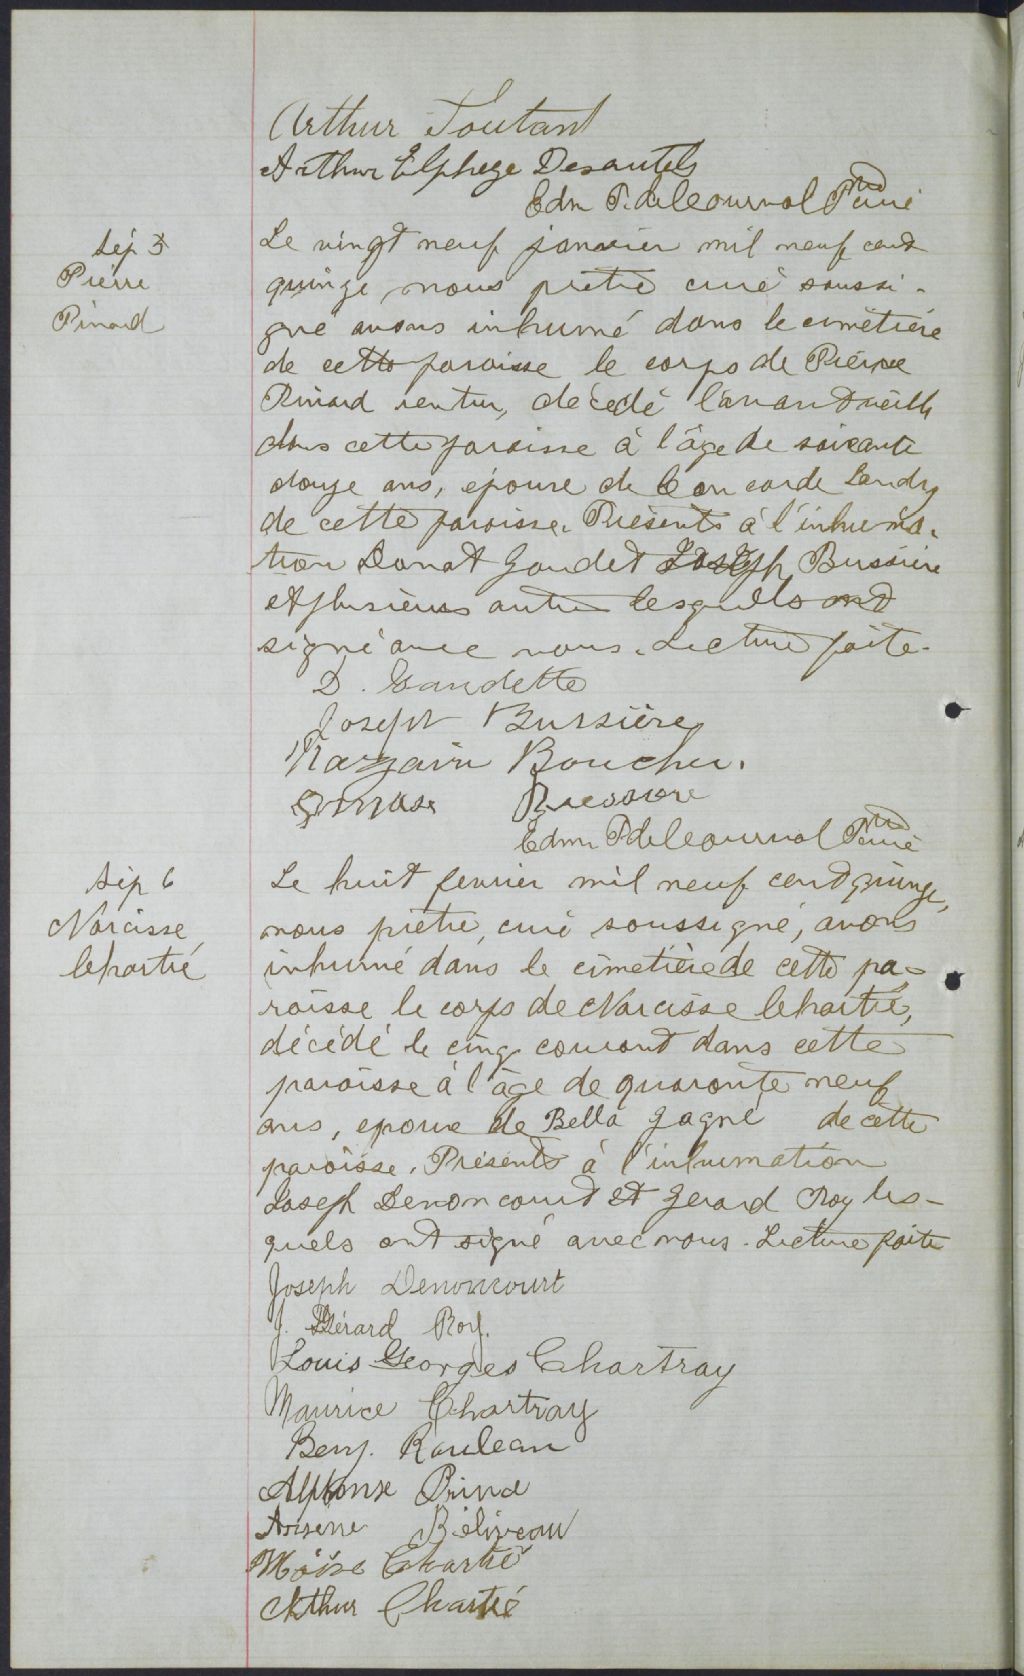 Arthur Toutant
Arthur Elphege Desautels
Edm P. de Courval Ptre
curé
Sép 5
Pierre
Pinard
Le vingt neuf janvier mil neuf cent
quinze nous pretre curé soussi-
gné avons inhumé dans le cimetière
de cette paroisse le corps de Pierre
Pinard rentier, décédé l'avant veille
dans cette paroisse à l'âge de soixante
douze ans, époux de Concorde Landry
de cette paroisse. Présents à l'inhuma-
tion Donat Gaudet Joseph Bussière
et plusieurs autres lesquells ont
signé avec nous. Lecture faite.
D. Gaudette
Joseph Bussière
Nazaire Boucher.
Bussiere
Edm P de Courval Ptre
curé
Sép 6
Narcisse
Chartré
Le huit fevrier mil neuf cent quinze,
nous prêtre, curé soussigné, avons
inhumé dans le cimetière de cette pa-
roisse le corps de Narcisse Chartré,
décédé le cinq courant dans cette
paroisse à l'âge de quarante neuf
ans, epoux de Bella Gagné de cette
paroisse. Présents à l'inhumation
Joseph Denoncourt et Gerard Roy les-
quels ont signé avec nous. Lecture faite
Joseph Denoncourt
J. Gérard Roy.
Louis Georges Chartray
Maurice Chartray
Benj. Rouleau
Alphonse Prince
Arsene Béliveau
Moïse Chartré
Arthur Chartré